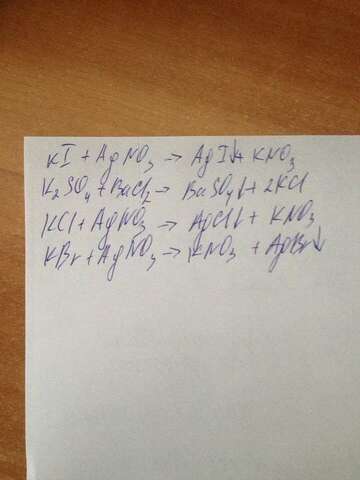 KI + AgNO₃ → AgI↓ + KNO₃
K₂SO₄ + BaCl₂ → BaSO₄↓ + 2KCl
KCl + AgNO₃ → AgCl↓ + KNO₃
KBr + AgNO₃ → KNO₃ + AgBr↓